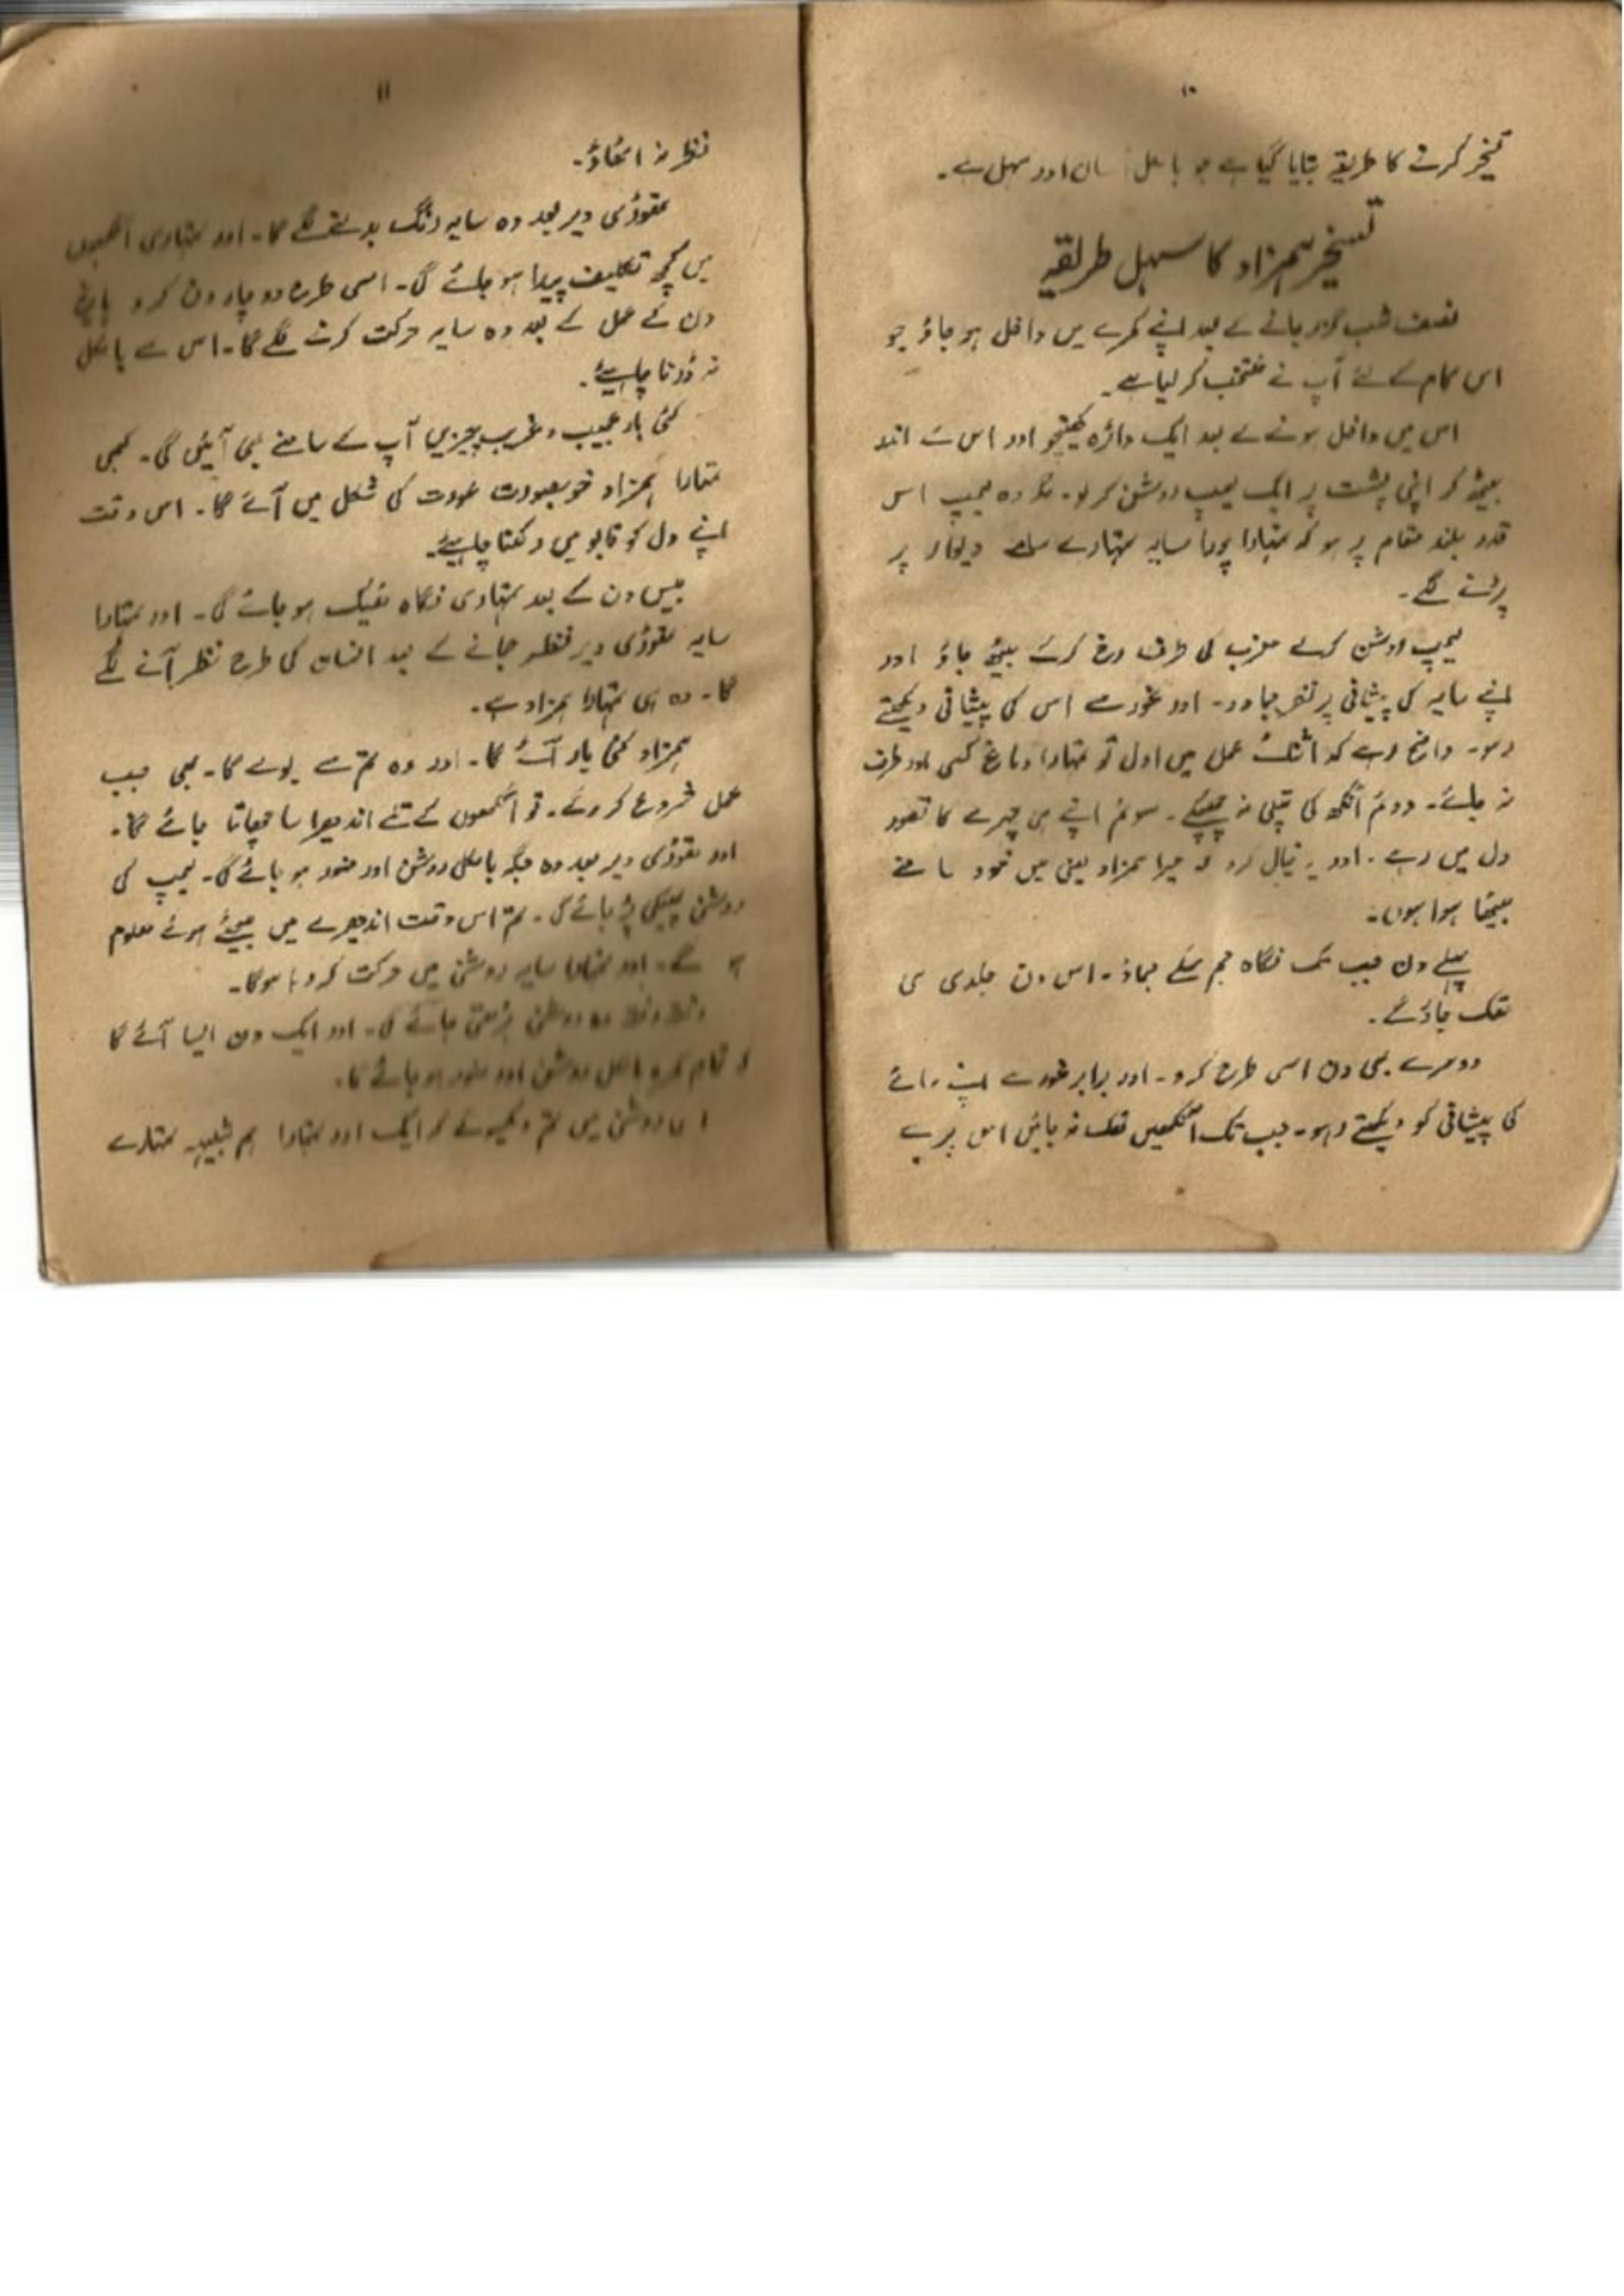 ۱۰
تسخیر کرنے کا طریقے بتایا گیا ہے جو بالکل آسان اور سہل ہے۔
تسخیر ہمزاد کا سہل طریقہ
نصف شب گزر جانے کے بعد اپنے کمرے میں داخل ہو جاؤ جو
اس کام کے لئے آپ نے منتخب کر لیا ہے۔
اس میں داخل ہونے کے بعد ایک دائرہ کھینچو اور اس کے اندر
بیٹھ کر اپنی پشت پر ایک لیمپ روشن کر لو۔ مگر وہ لیمپ اس
قدر بلند مقام پر ہو کہ تمہارا پورا سایہ تمہارے سامنے دیوار پر
پڑنے لگے۔
لیمپ روشن کرکے مغرب کی طرف رخ کرکے بیٹھ جاؤ اور
اپنے سایہ کی پیشانی پر نظر جما دو۔ اور غور سے اس کی پیشانی دیکھتے
رہو۔ واضح رہے کہ اثنائے عمل میں اول تو تمہارا دماغ کسی اور طرف
نہ جائے۔ دوئم آنکھ کی پتلی نہ جھپکے۔ سوئم اپنے ہی چہرے کا تصور
دل میں رہے۔ اور یہ خیال کرو کہ میرا ہمزاد یعنی میں خود سامنے
بیٹھا ہوا ہوں۔
پہلے دن جب تک نگاہ جم سکے جماؤ۔ اس دن جلدی ہی
تھک جاؤ گے۔
دوسرے بھی دن اسی طرح کرو۔ اور برابر غور سے اپنے سائے
کی پیشانی کو دیکھتے رہو۔ جب تک آنکھیں تھک نہ جائیں اس پر سے
۱۱
نظر نہ اٹھاؤ۔
تھوڑی دیر بعد وہ سایہ رنگ بدلنے لگے گا۔ اور تمہاری آنکھوں
میں کچھ تکلیف پیدا ہو جائے گی۔ اسی طرح دو چار دن کرو پانچ
دن کے عمل کے بعد وہ سایہ حرکت کرنے لگے گا۔ اس سے بالکل
نہ ڈرنا چاہیئے۔
کئی بار عجیب و غریب چیزیں آپ کے سامنے بھی آئیں گی۔ کبھی
تمہارا ہمزاد خوبصورت عورت کی شکل میں آئے گا۔ اس وقت
اپنے دل کو قابو میں رکھنا چاہیئے۔
بیس دن کے بعد تمہاری نگاہ ٹھیک ہو جائے گی۔ اور تمہارا
سایہ تھوڑی دیر نظر جمانے کے بعد انسان کی طرح نظر آنے لگے
گا۔ وہ ہی تمہارا ہمزاد ہے۔
ہمزاد کئی بار آئے گا۔ اور وہ تم سے بولے گا۔ بھی جب
عمل شروع کرو گے۔ تو آنکھوں کے تلے اندھیرا سا چھاتا جائے گا۔
اور تھوڑی دیر بعد وہ جگہ بالکل روشن اور منور ہو جائے گی۔ لیمپ کی
روشنی پھیکی پڑ جائے گی۔ تم اس وقت اندھیرے میں بیٹھے ہوئے معلوم
ہو گے۔ اور تمہارا سایہ روشنی میں حرکت کر رہا ہوگا۔
رفتہ رفتہ وہ روشنی بڑھتی جائے گی۔ اور ایک دن ایسا آئے گا
کہ تمام کمرہ بالکل روشن اور منور ہو جائے گا۔
اس روشنی میں تم دیکھو گے کہ ایک اور تمہارا ہم شبیہہ تمہارے